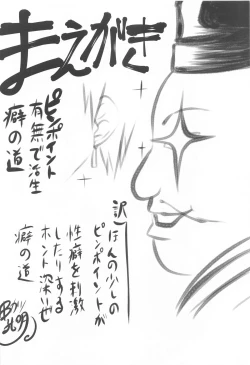 まえがき
ピンポイント
有無で活生
癖の道
訳
ほんの少しの
ピンポイントが
性癖を刺激
したりする
ホント深いぜ
癖の道